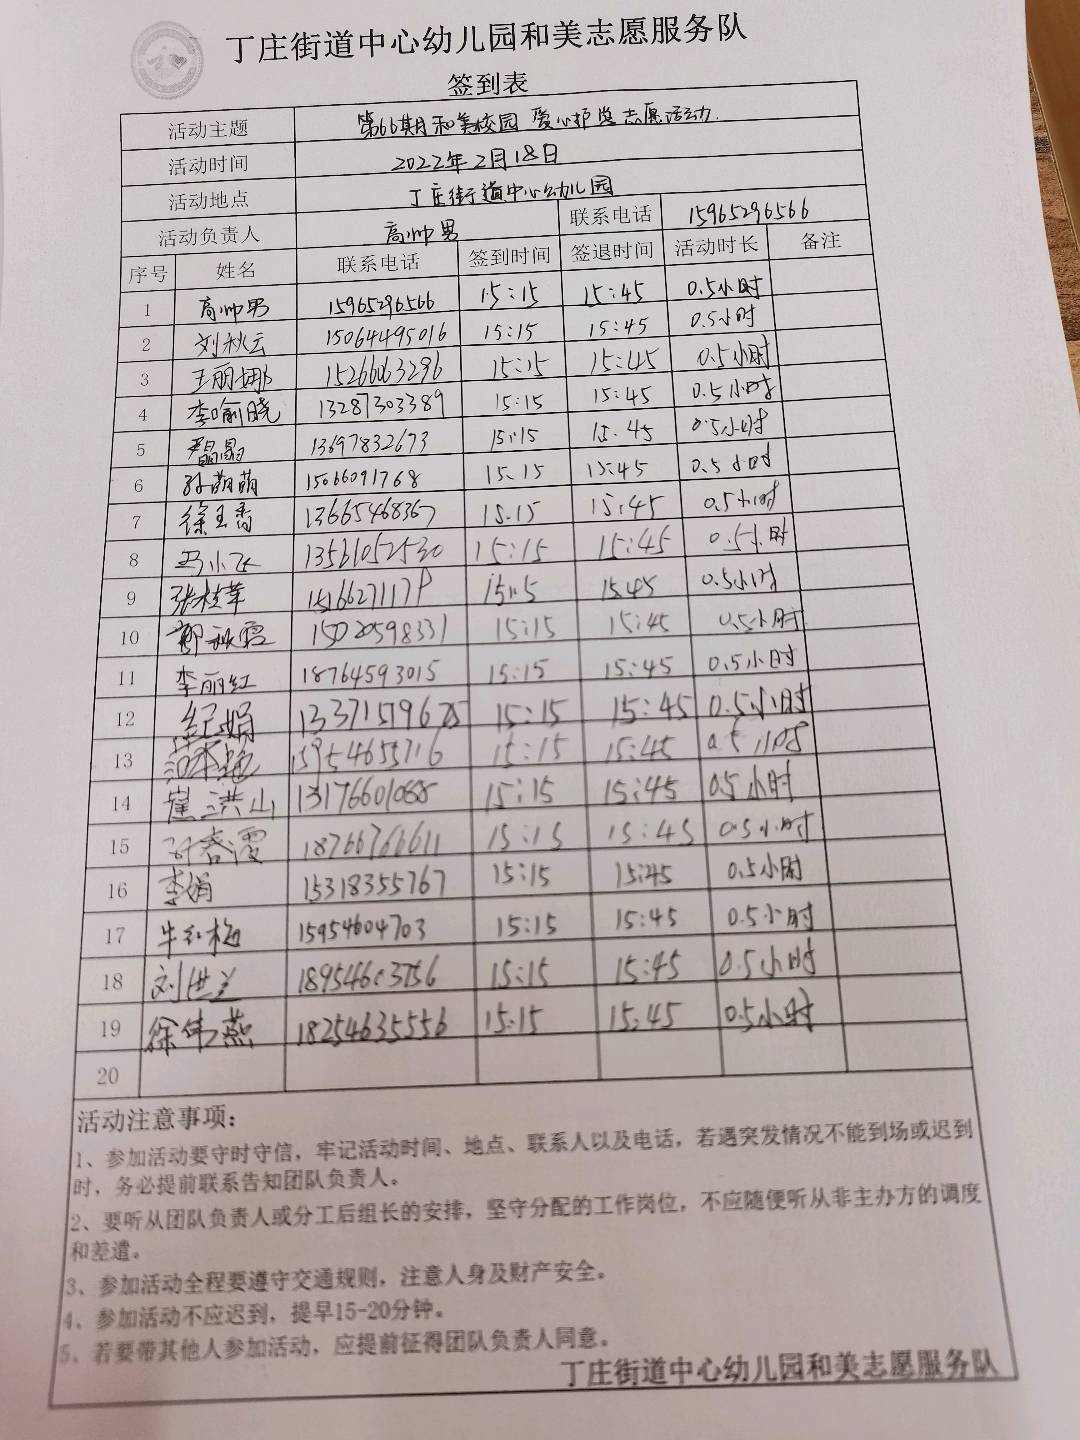 丁庄街道中心幼儿园和美志愿服务队
签到表
活动主题 第66期和美校园 爱心护学志愿活动.
活动时间 2022年2月18日
活动地点 丁庄街道中心幼儿园
活动负责人 高帅男 联系电话 15965296566
序号 姓名 联系电话 签到时间 签退时间 活动时长 备注
1 高帅男 15965296566 15:15 15:45 0.5小时
2 刘秋云 15064495016 15:15 15:45 0.5小时
3 王丽娜 15266063296 15:15 15:45 0.5小时
4 李喻晓 13287303389 15:15 15:45 0.5小时
5 13697832673 15:15 15:45 0.5小时
6 孙萌萌 15066091768 15:15 15:45 0.5小时
7 徐玉香 13665468367 15:15 15:45 0.5小时
8 马小飞 13561052530 15:15 15:45 0.5小时
9 张桂苹 15:15 15:45 0.5小时
10 15020598331 15:15 15:45 0.5小时
11 李丽红 18764593015 15:15 15:45 0.5小时
12 纪娟 15:15 15:45 0.5小时
13 15954655716 15:15 15:45 0.5小时
14 崔洪山 13176601088 15:15 15:45 0.5小时
15 孙春霞 18766766611 15:15 15:45 0.5小时
16 李娟 15318355767 15:15 15:45 0.5小时
17 牛红梅 15954604703 15:15 15:45 0.5小时
18 刘世兰 18954603756 15:15 15:45 0.5小时
19 徐伟燕 18254635556 15:15 15:45 0.5小时
20
活动注意事项:
1、参加活动要守时守信，牢记活动时间、地点、联系人以及电话，若遇突发情况不能到场或迟到
时，务必提前联系告知团队负责人。
2、要听从团队负责人或分工后组长的安排，坚守分配的工作岗位，不应随便听从非主办方的调度
和差遣。
3、参加活动全程要遵守交通规则，注意人身及财产安全。
4、参加活动不应迟到，提早15-20分钟。
5、若要带其他人参加活动，应提前征得团队负责人同意。
丁庄街道中心幼儿园和美志愿服务队